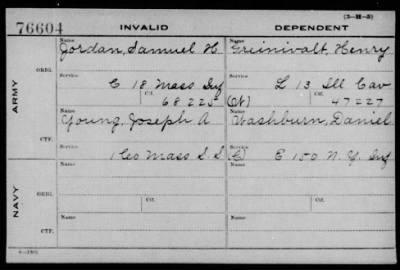 (3-H-5)
76604 INVALID DEPENDENT
Name Name
Jordan, Samuel H Greinivalt, Henry
ORIG.
Service Service
C 18 Mass Inf L 13 Ill Cav
Ctf. Ctf.
68225 (W) 47227
ARMY
Name Name
Young, Joseph A Washburn, Daniel
CTF.
Service Service
1 Co Mass S.S. (C) E 150 N.Y. Inf
Name Name
ORIG.
Service Ctf. Service Ctf.
NAVY
Name Name
CTF.
Service Service